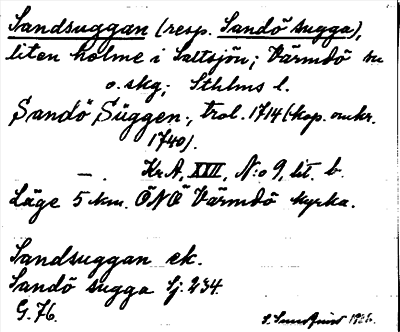 Sandsuggan (resp. Sandö sugga),
liten holme i Saltsjön; Värmdö sn
o. skg; Sthlms l.
Sandö Süggen, trol. 1714 (kop. omkr.
1740).
— . Kr.A, XXII, N:o 9, lit. b.
Läge 5 km. ÖNÖ Värmdö kyrka.
Sandsuggan ek.
Sandö sugga Sj. 234.
G. 76.
S. Sundquist 1926.